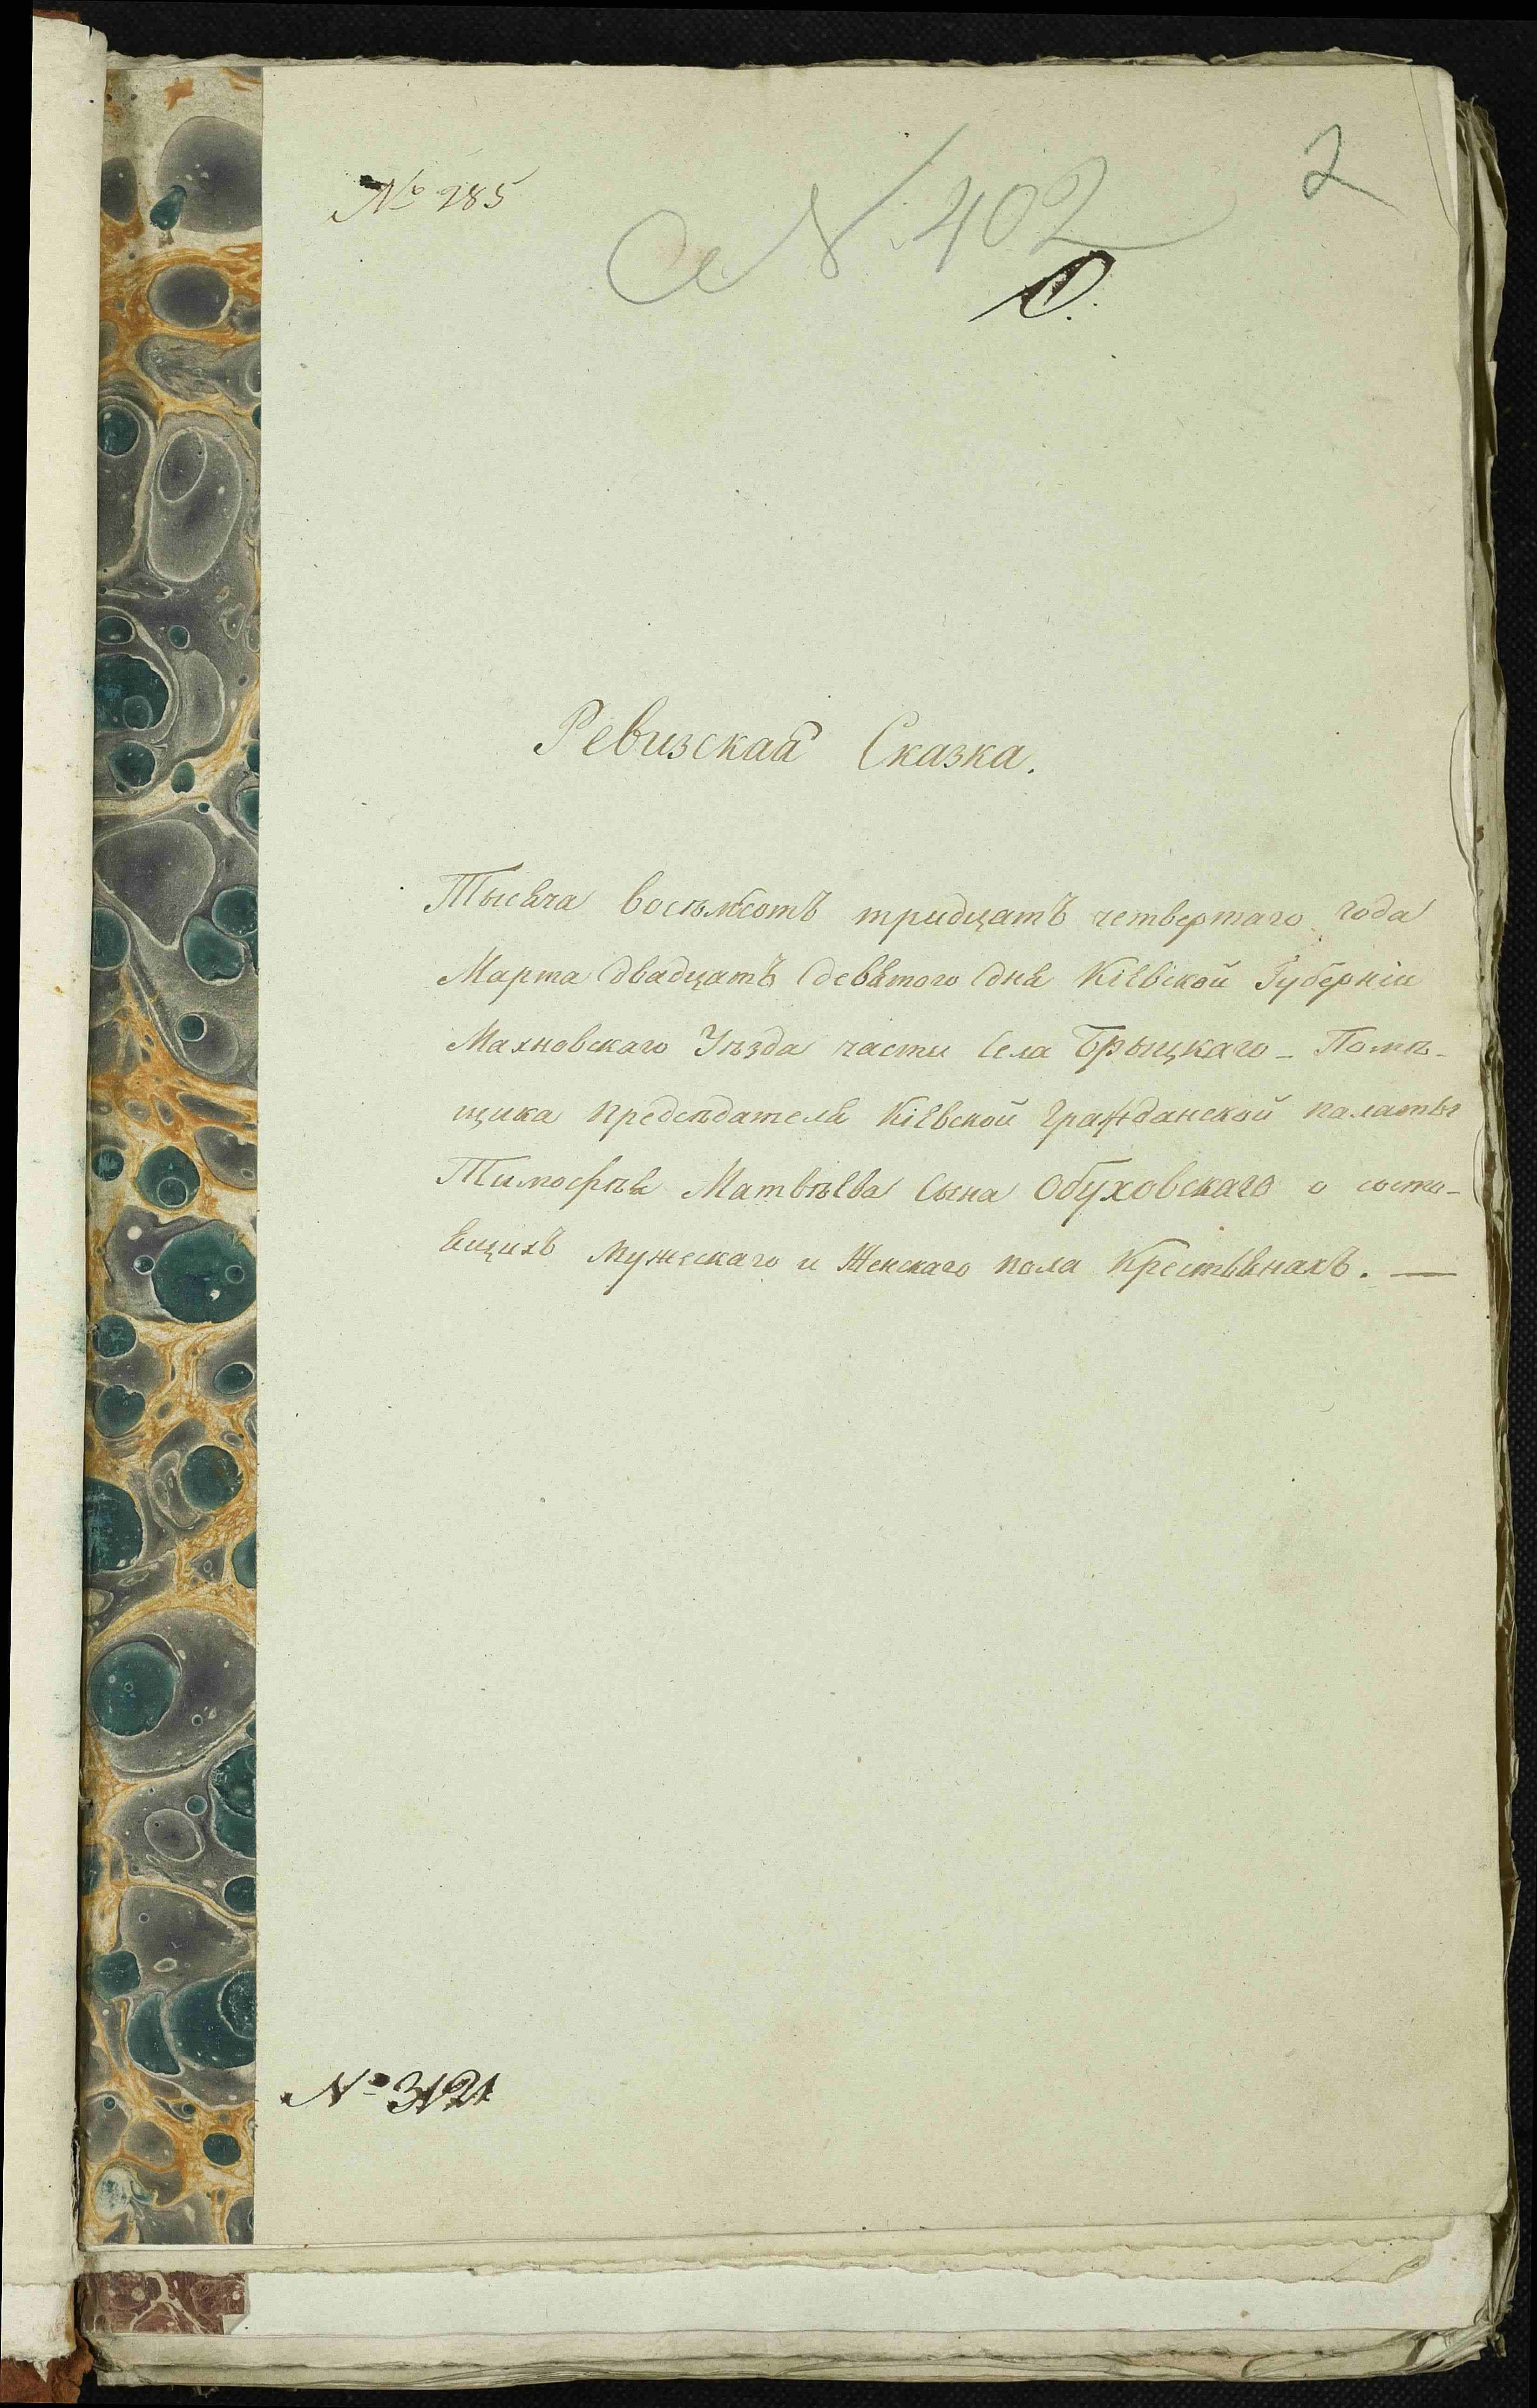 № 285
№ 402
2
Ревизская Сказка.
Тысяча восѣмсотъ тридцатъ четвертаго года
Марта двадцатъ девятого дня Кіевской Губерніи
Махновскаго Уѣзда части Села Брыцкаго - Помѣ-
щика предсѣдателя Кіевской Гражданской палаты
Тимофѣя Матвѣева Сына Обуховскаго о состо-
ящихъ мужескаго и Женскаго пола Крестьянахъ. —